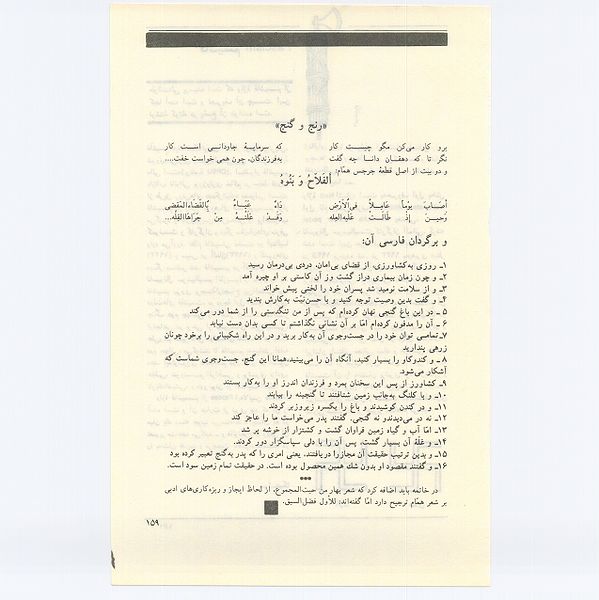 «رنج و گنج»
برو کار می‌کن مگو چیست کار که سرمایهٔ جاودانی است کار
نگر تا که دهقان دانا چه گفت به‌فرزندگان، چون همی خواست خفت....
و دو بیت از اصل قطعهٔ جرجس همّام:
اَلفَلاّحُ وَ بَنُوهُ
أَصَابَ یوْماً عَامِلاً فِی‌الأَرْضِ دَاءٌ عَیَاءٌ بِالقَضَاءِالمَقضی
وَحینَ إِذْ طَالَتْ عَلَیهِ‌العِله وَقَدْ
و برگردان فارسی آن:
۱ـ روزی به‌کشاورزی، از قضای بی‌امان، دردی بی‌درمان رسید
۲ـ و چون زمان بیماری دراز گشت وز آن کاستی بر او چیره آمد
۳ـ و از سلامت نومید شد پسران خود را لختی پیش خواند
۴ـ و گفت بدین وصیت توجه کنید و با حسن‌نیّت به‌کارش بندید
۵ ـ در این باغ گنجی نهان کرده‌ام که پس از من تنگدستی را از شما دور می‌کند
۶ ـ آن را مدفون کرده‌ام امّا بر آن نشانی نگذاشتم تا کسی بدان دست نیابد
۷ـ تمامی توان خود را در جست‌وجوی آن به‌کار برید و در این راه شکیبائی را برخود چونان
زرهی پندارید
۸ ـ و کندوکاو را بسیار کنید، آنگاه آن را می‌بینید.همانا این گنج، جست‌وجوی شماست که
آشکار می‌شود.
۹ـ کشاورز از پس این سخنان بمرد و فرزندان اندرز او را به‌کار بستند
۱۰ـ و با کلنگ به‌جانب زمین شتافتند تا گنجینه را بیابند
۱۱ـ و در کندن کوشیدند و باغ را یکسره زیروزبر کردند
۱۲ـ نه در می‌دیدندو نه گنجی. گفتند پدر می‌خواست ما را عاجز کند
۱۳ـ امّا آب و گیاه زمین فراوان گشت و کشتزار از خوشه پر شد
۱۴ـ و غلّهٔ آن بسیار گشت، پس آن را با دلی سپاسگزار درو کردند.
۱۵ـ و بدین ترتیب حقیقت آن مجازرا دریافتند، یعنی امری را که پدر به‌گنج تعبیر کرده بود
۱۶ـ و گفتند مقصود او بدون شك همین محصول بوده است. در حقیقت تمام زمین سود است.
***
در خاتمه باید اضافه کرد که شعر بهار من حیث‌المجموع، از لحاظ ایجاز و ریزه‌کاری‌های ادبی
بر شعر همّام ترجیح دارد امّا گفته‌اند: للأول فضل‌السبق.
۱۵۹